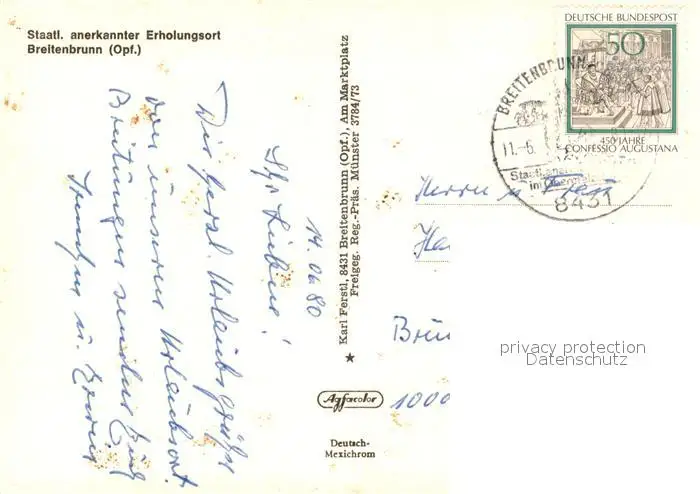 Staatl. anerkannter Erholungsort
Breitenbrunn (Opf.)
DEUTSCHE BUNDESPOST
50
450 JAHRE
CONFESSIO AUGUSTANA
BREITENBRUNN
11.-6.
8431
Karl Ferstl, 8431 Breitenbrunn (Opf.), Am Marktplatz
Freigeg. Reg.-Präs. Münster 3784/73
Agfacolor
Deutsch-
Mexichrom
14.06.80
Ihr Lieben!
Die herzl. Urlaubsgrüße
von unserem Urlaubsort
sendet Euch
u.
Herrn u. Frau
1000
privacy protection
Datenschutz